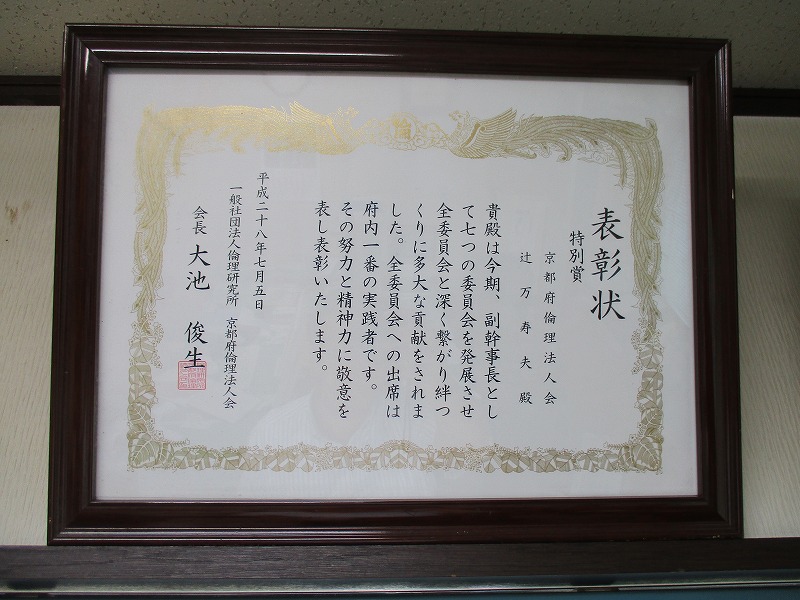 表彰状
特別賞
京都府倫理法人会
辻万寿夫殿
貴殿は今期、副幹事長とし
て七つの委員会を発展させ
全委員会と深く繋がり絆つ
くりに多大な貢献をされま
した。全委員会への出席は
府内一番の実践者です。
その努力と精神力に敬意を
表し表彰いたします。
平成二十八年七月五日
一般社団法人倫理研究所 京都府倫理法人会
会長 大池 俊生